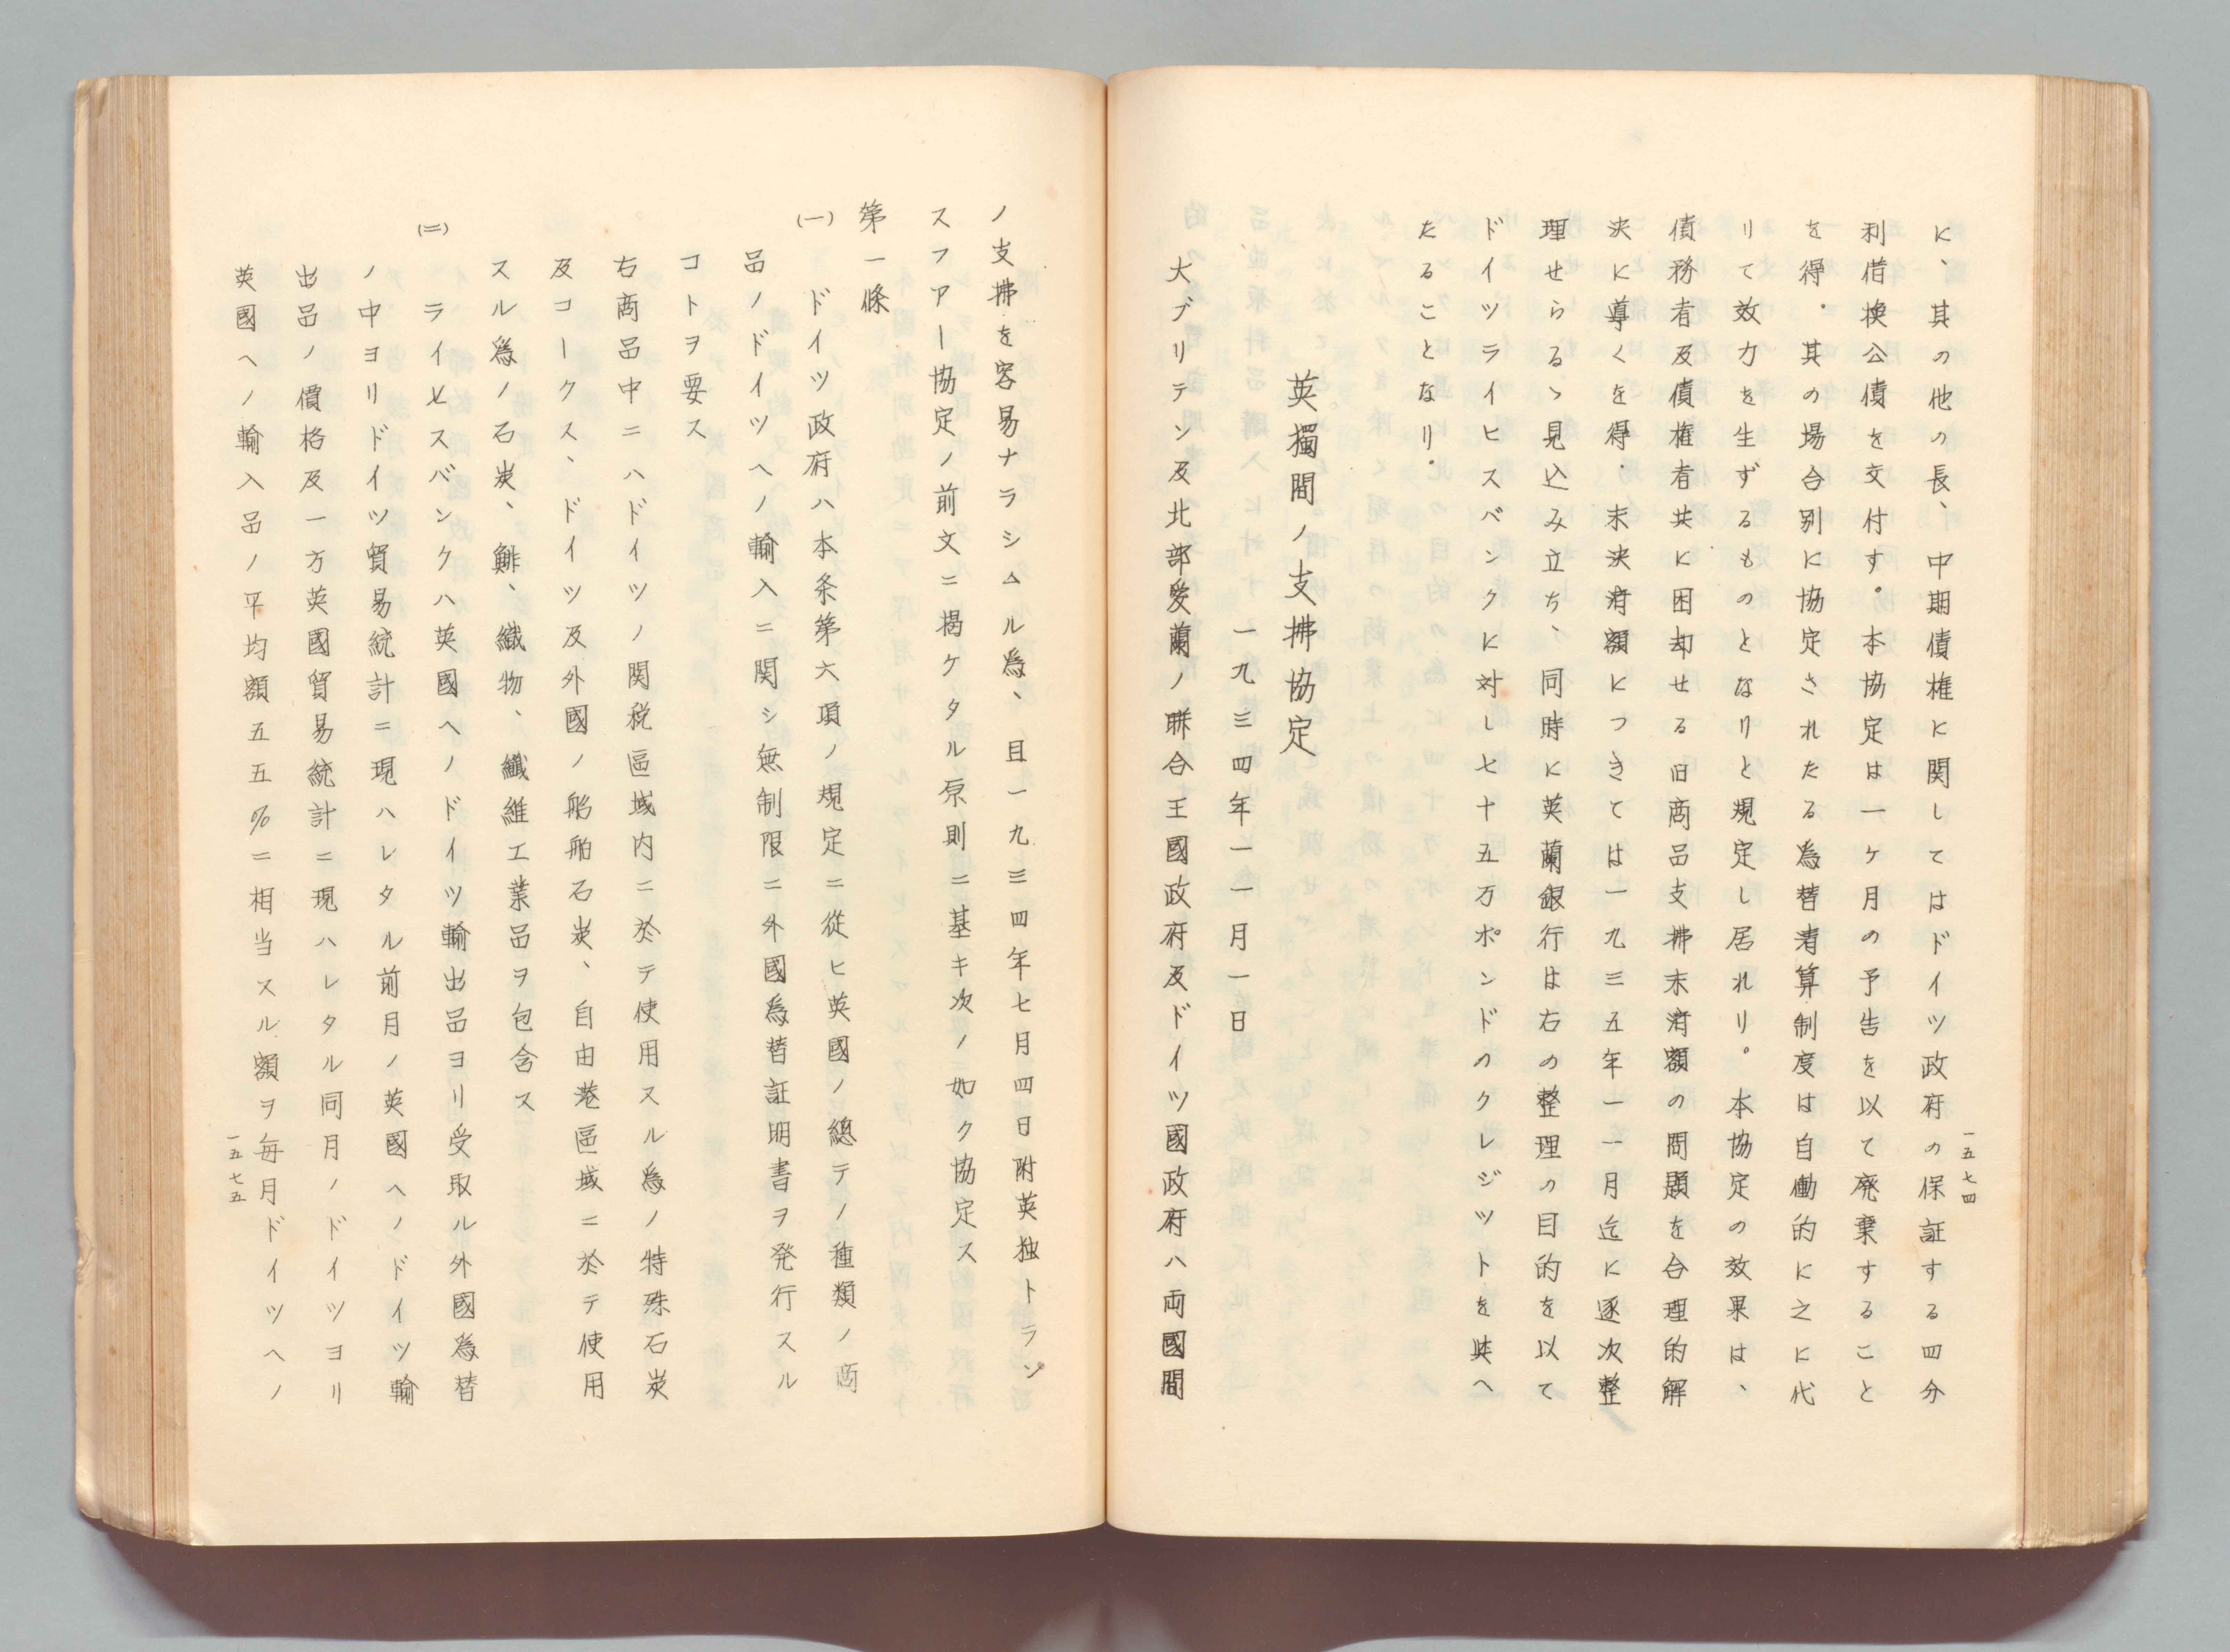 一五七四
に、其の他の長、中期債権に関してはドイツ政府の保証する四分
利借換公債を交付す。本協定は一ケ月の予告を以て廃棄すること
を得。其の場合別に協定されたる為替清算制度は自働的に之に代
りて效力を生ずるものとなりと規定し居れり。本協定の效果は、
債務者及債権者共に困却せる旧商品支拂未済額の問題を合理的解
決に導くを得。未決済額につきては一九三五年一一月迄に逐次整
理せらるゝ見込み立ち、同時に英蘭銀行は右の整理の目的を以て
ドイツライヒスバンクに対し七十五万ポンドのクレジツトを與へ
たることなり。
英獨間ノ支拂協定
一九三四年一一月一日
大ブリテン及北部愛蘭ノ聯合王國政府及ドイツ國政府ハ両國間
ノ支拂を容易ナラシムル爲、目一九三四年七月四日附英独トラン
スフアー協定ノ前文ニ揭ケタル原則ニ基キ次ノ如ク協定ス
第一條
(一)ドイツ政府ハ本条第六項ノ規定ニ從ヒ英國ノ總テノ種類ノ商
品ノドイツヘノ輸入ニ関シ無制限ニ外國爲替証明書ヲ発行スル
コトヲ要ス
右商品中ニハドイツノ関税區域内ニ於テ使用スル爲ノ特殊石炭
及コークス、ドイツ及外國ノ船舶石炭、自由港區域ニ於テ使用
スル爲ノ石炭、鯡、織物、纖維工業品ヲ包含ス
(二)ライヒスバンクハ英國ヘノドイツ輸出品ヨリ受取ル外國爲替
ノ中ヨリドイツ貿易統計ニ現ハレタル前月ノ英國ヘノドイツ輸
出品ノ價格及一方英國貿易統計ニ現ハレタル同月ノドイツヨリ
英國ヘノ輸入品ノ平均額五五%ニ相当スル額ヲ毎月ドイツヘノ
一五七五